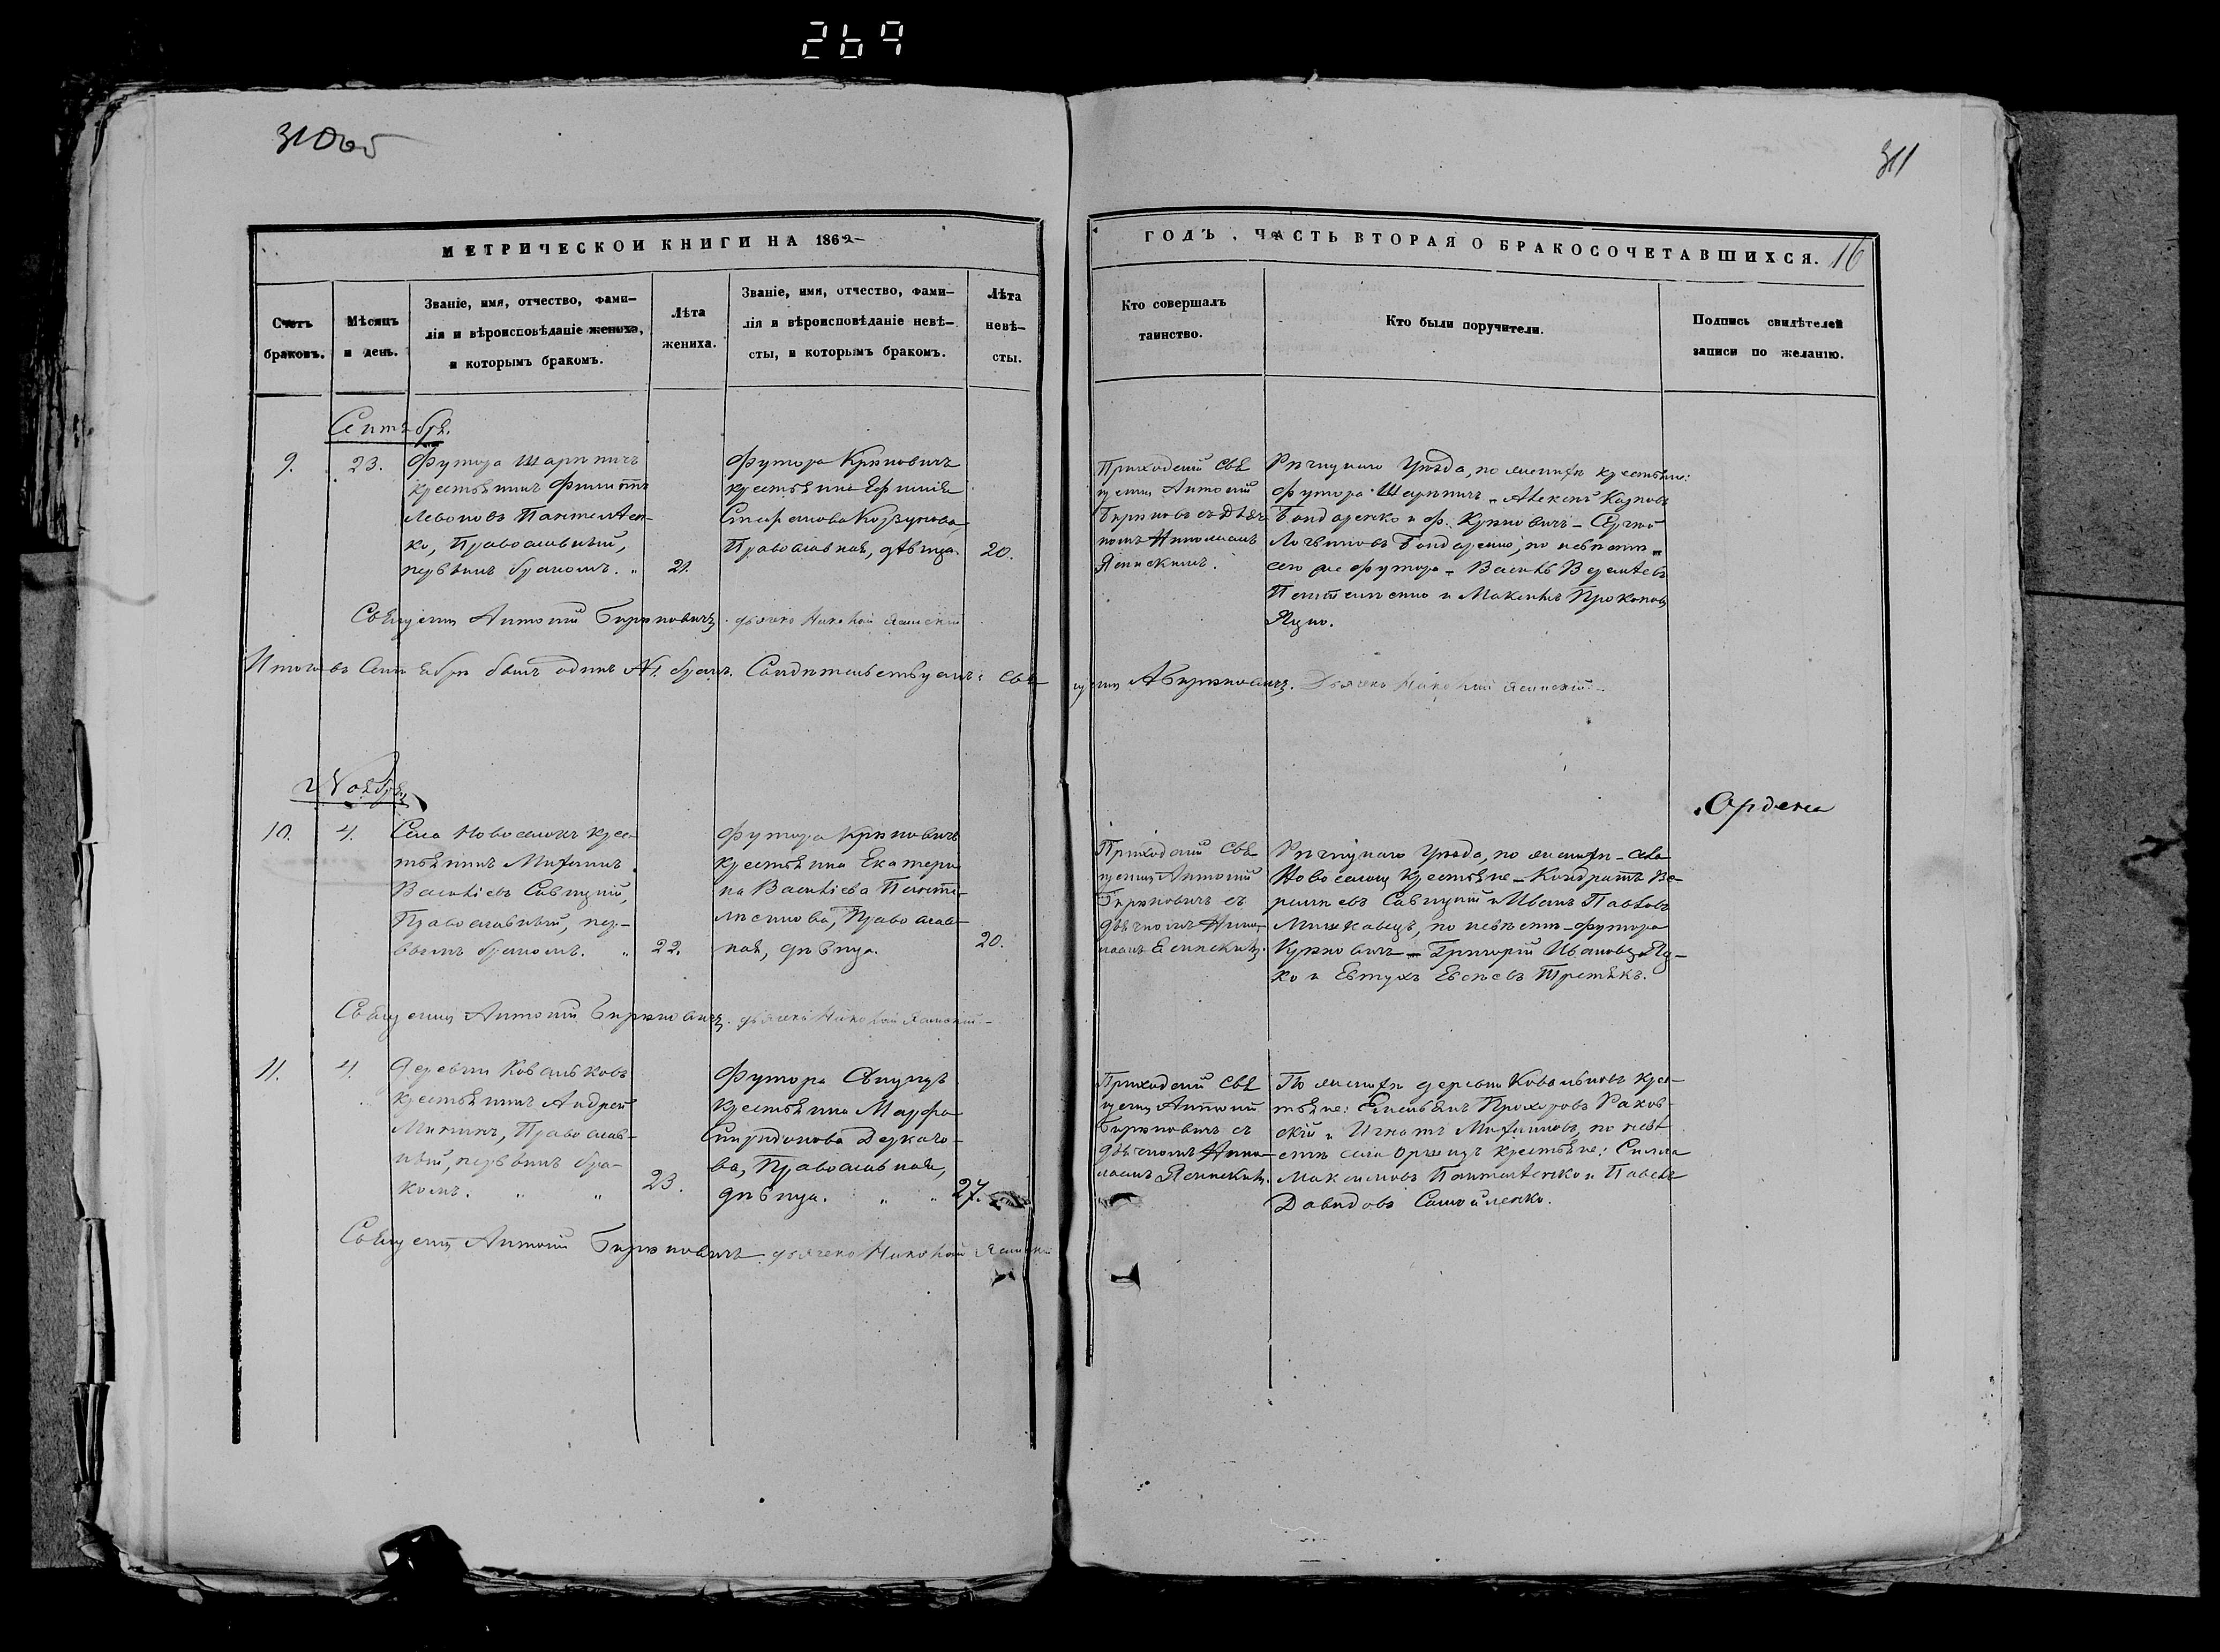 269
310об
311
МЕТРИЧЕСКОЙ КНИГИ НА 1862
Счетъ браковъ.
Мѣсяцъ и день.
Званіе, имя, отчество, фами-
лія и вѣроисповѣданіе жениха,
и которымъ бракомъ.
Лѣта жениха.
Званіе, имя, отчество, фами-
лія и вѣроисповѣданіе невѣ-
сты, и которымъ бракомъ.
Лѣта невѣ-
сты.
ГОДЪ, ЧАСТЬ ВТОРАЯ О БРАКОСОЧЕТАВШИХСЯ. 16
Кто совершалъ
таинство.
Кто были поручители.
Подпись свидѣтелей
записи по желанію.
Сентября.
9.
23.
Футора
крестьянинъ Филиппъ
Леоновъ Пантелѣен-
ко, Православный,
первымъ бракомъ.
21.
Футора Крюковичъ
крестьянка Ефимія
Стефанова
Православная, дѣвица.
20.
Приходскій Свя
щенник Антоній
Бирюковъ съ Дьяч
комъ Николаемъ
Ясинскимъ.
Рѣчицкаго Уѣзда, по женихѣ крестьяне:
футора Алексѣй
Бондаренко и ф. Крюковичъ - Сергѣй
Логвиновъ Бондаренко, по невѣстѣ
того же футора - Василь
и Максимъ Прокоповъ
Яцко.
Священникъ Антоній Бирюковичъ. дьячекъ Николай Ясинскій
Итого въ Сентябрѣ былъ одинъ №1. бракъ. Свидѣтельствуемъ: Свя
щенникъ А Бирюковичъ. Дьячекъ Николай Ясинскій
Ноября
10.
4.
Села Новоселокъ крес
тьянинъ
Васильевъ Савицкій,
Православный, пер-
вымъ бракомъ.
22.
Футора Крюковичъ
крестьянка Екатери
на Васильева Панте-
Православ
ная, дѣвица.
20.
Приходскій Свя
щенникъ Антоній
Бирюковичъ съ
дьячкомъ Нико-
лаемъ Ясинскимъ.
Рѣчицкаго Уѣзда, по женихѣ - села
Новоселокъ крестьяне - Кондратъ
Савицкій и Иванъ Павловъ
по невѣстѣ - футора
Крюковичъ - Григорій Ивановъ Яц-
ко и Евтухъ Третьякъ.
Ордена
Священникъ Антоній Бирюковичъ. дьячекъ Николай Ясинскій
11.
4.
Деревни Ковальковъ
крестьянинъ Андрей
Православ-
ный, первымъ бра-
комъ.
23.
Футора
крестьянка Марфа
Спиридонова Деркачо-
ва, Православная,
дѣвица.
27.
Приходскій Свя
щенникъ Антоній
Бирюковичъ съ
дьячкомъ Нико-
лаемъ Ясинскимъ.
По женихѣ деревни Ковальковъ крес-
тьяне: Емельянъ Прохоровъ Раков-
скій и Игнатъ по невѣ-
стѣ села крестьяне:
Максимовъ Пантелѣенко и Павелъ
Давидовъ Самойленко.
Священникъ Антоній Бирюковичъ. дьячекъ Николай Ясинскій